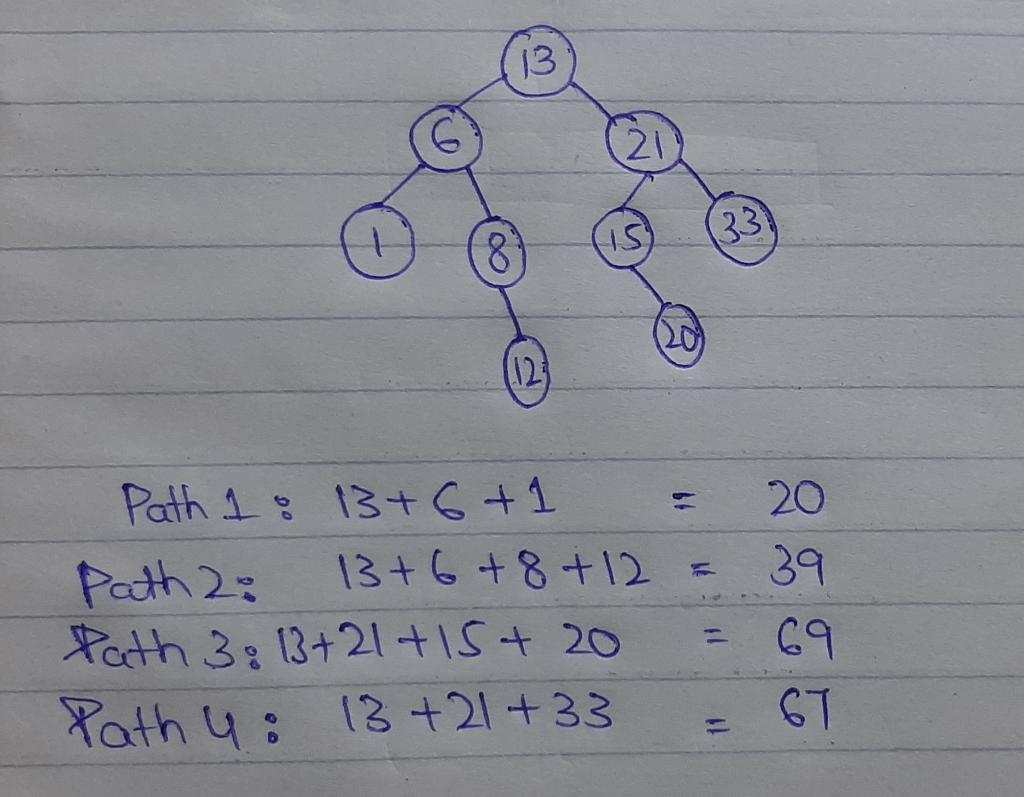 13
6
21
1
8
15
33
12
20
Path 1: 13+6+1 = 20
Path 2: 13+6+8+12 = 39
Path 3: 13+21+15+20 = 69
Path 4: 13+21+33 = 67